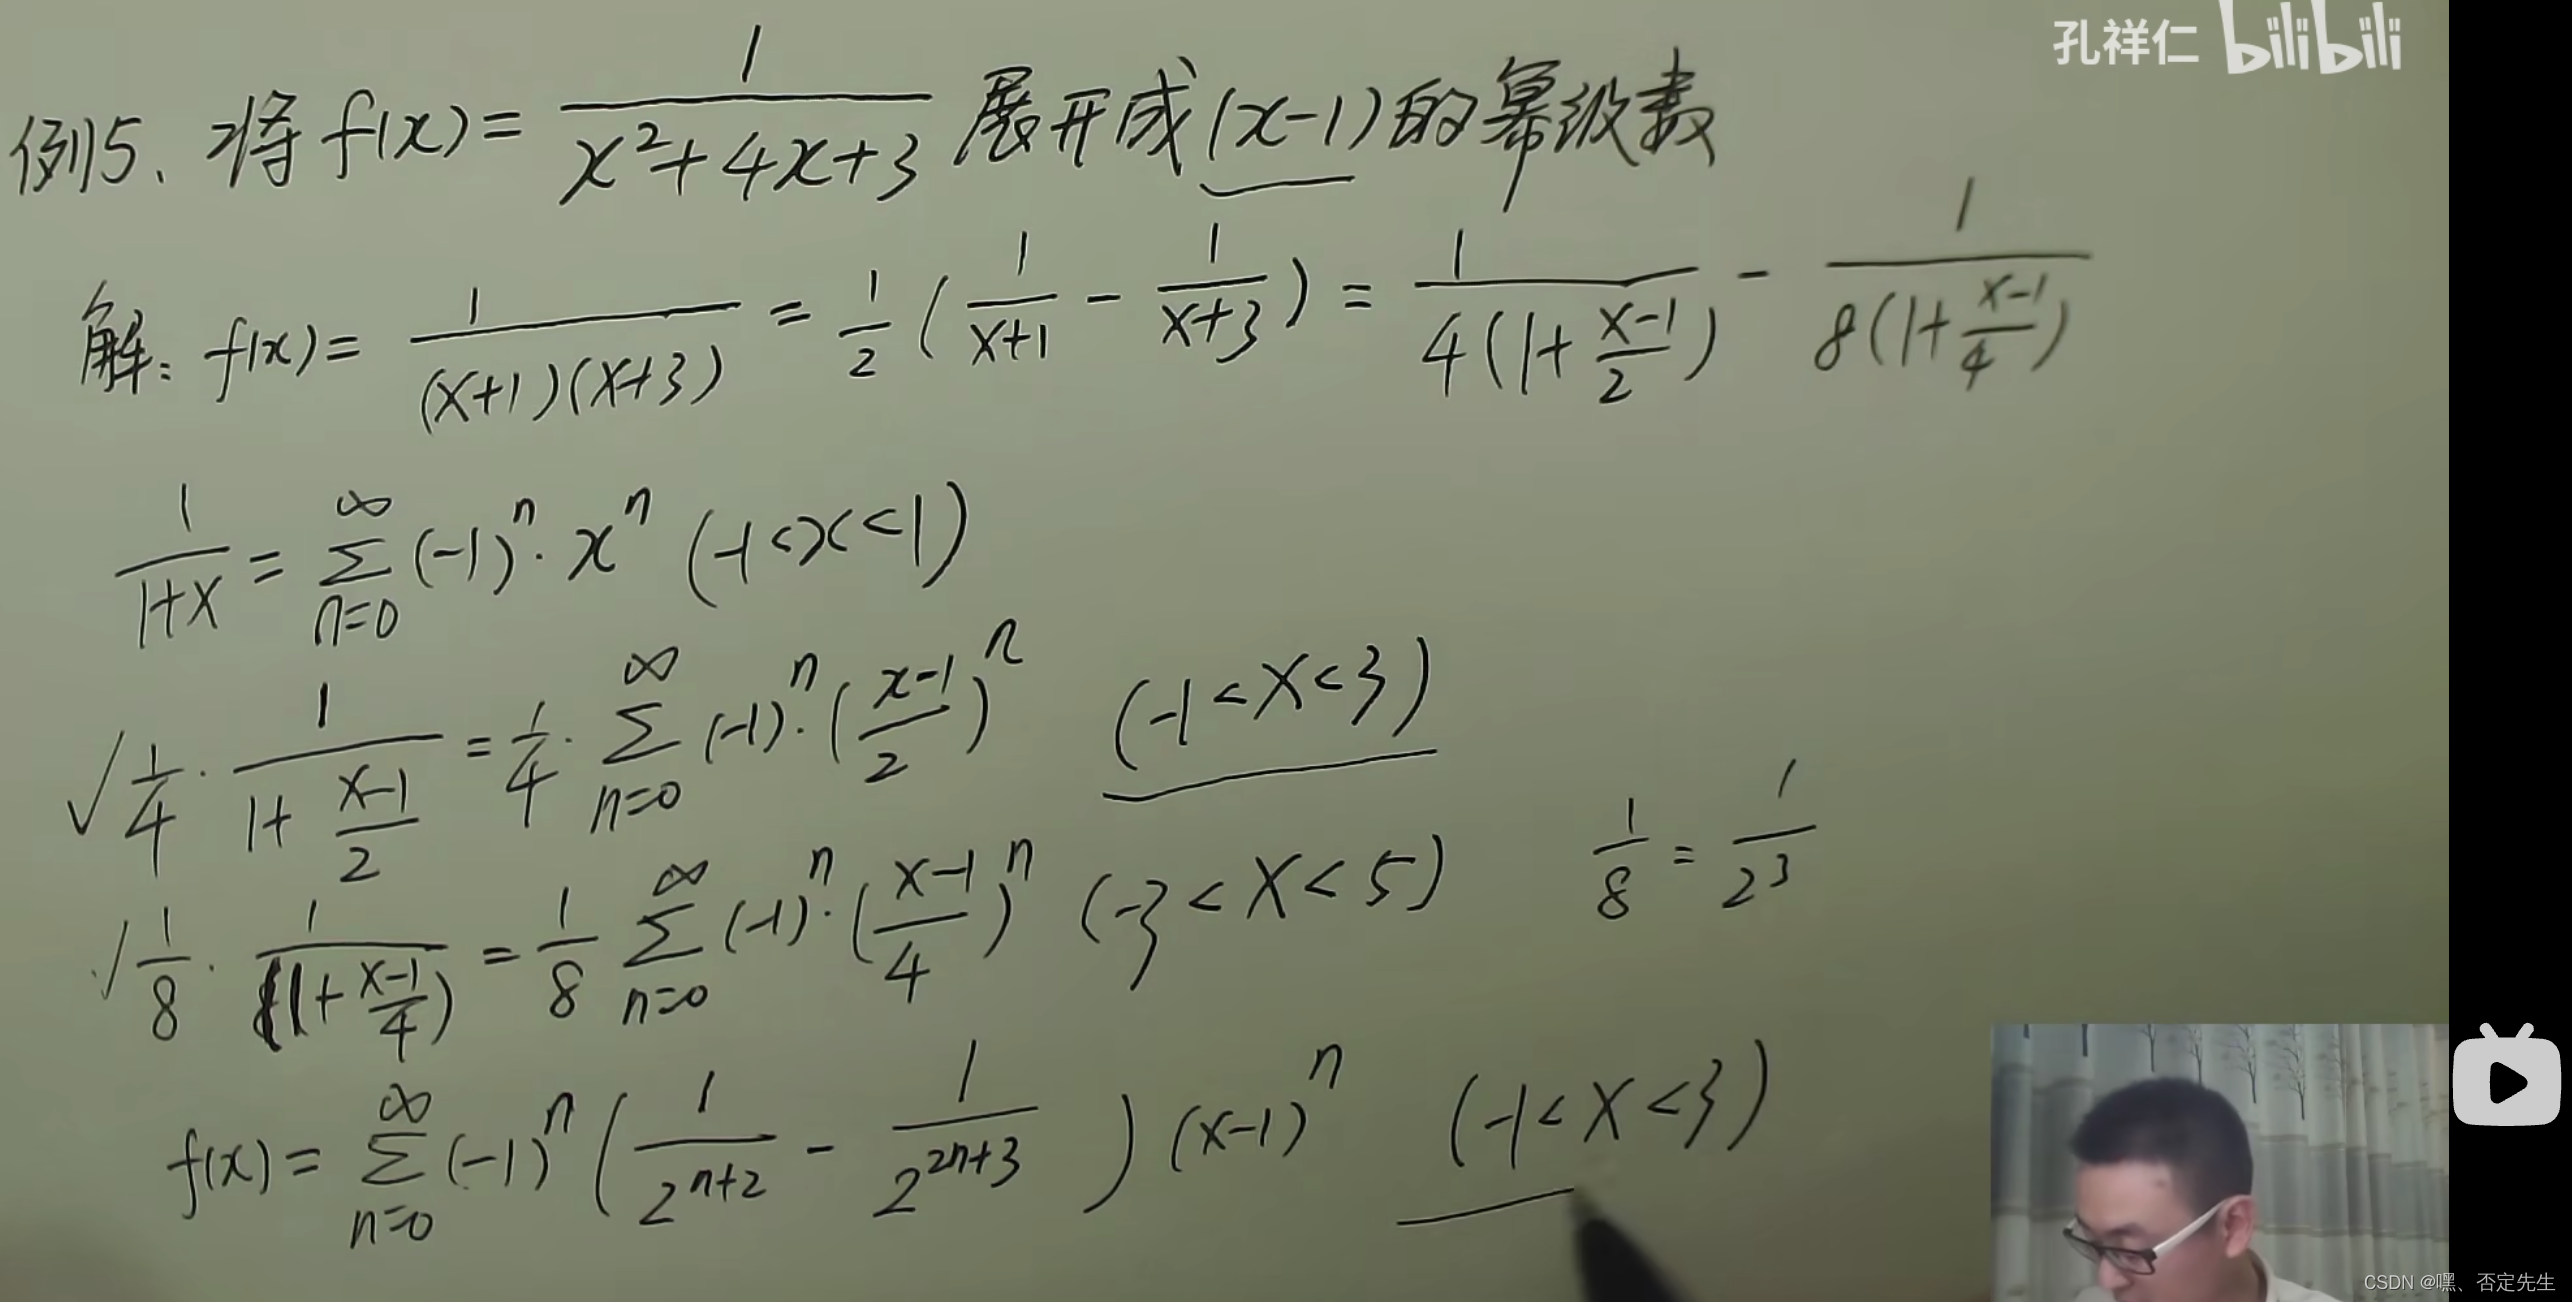 孔祥仁 bilibili
例5、将 f(x) = \frac{1}{x^2+4x+3} 展开成(x-1)的幂级数
解: f(x) = \frac{1}{(x+1)(x+3)} = \frac{1}{2} ( \frac{1}{x+1} - \frac{1}{x+3} ) = \frac{1}{4(1+\frac{x-1}{2})} - \frac{1}{8(1+\frac{x-1}{4})}
\frac{1}{1+x} = \sum_{n=0}^{\infty} (-1)^n · x^n (-1<x<1)
√ \frac{1}{4} · \frac{1}{1+\frac{x-1}{2}} = \frac{1}{4} · \sum_{n=0}^{\infty} (-1)^n · (\frac{x-1}{2})^n (-1<x<3)
\frac{1}{8} = \frac{1}{2^3}
√ \frac{1}{8} · \frac{1}{(1+\frac{x-1}{4})} = \frac{1}{8} \sum_{n=0}^{\infty} (-1)^n · (\frac{x-1}{4})^n (-3<x<5)
f(x) = \sum_{n=0}^{\infty} (-1)^n ( \frac{1}{2^{n+2}} - \frac{1}{2^{2n+3}} ) (x-1)^n (-1<x<3)
CSDN @嘿、否定先生